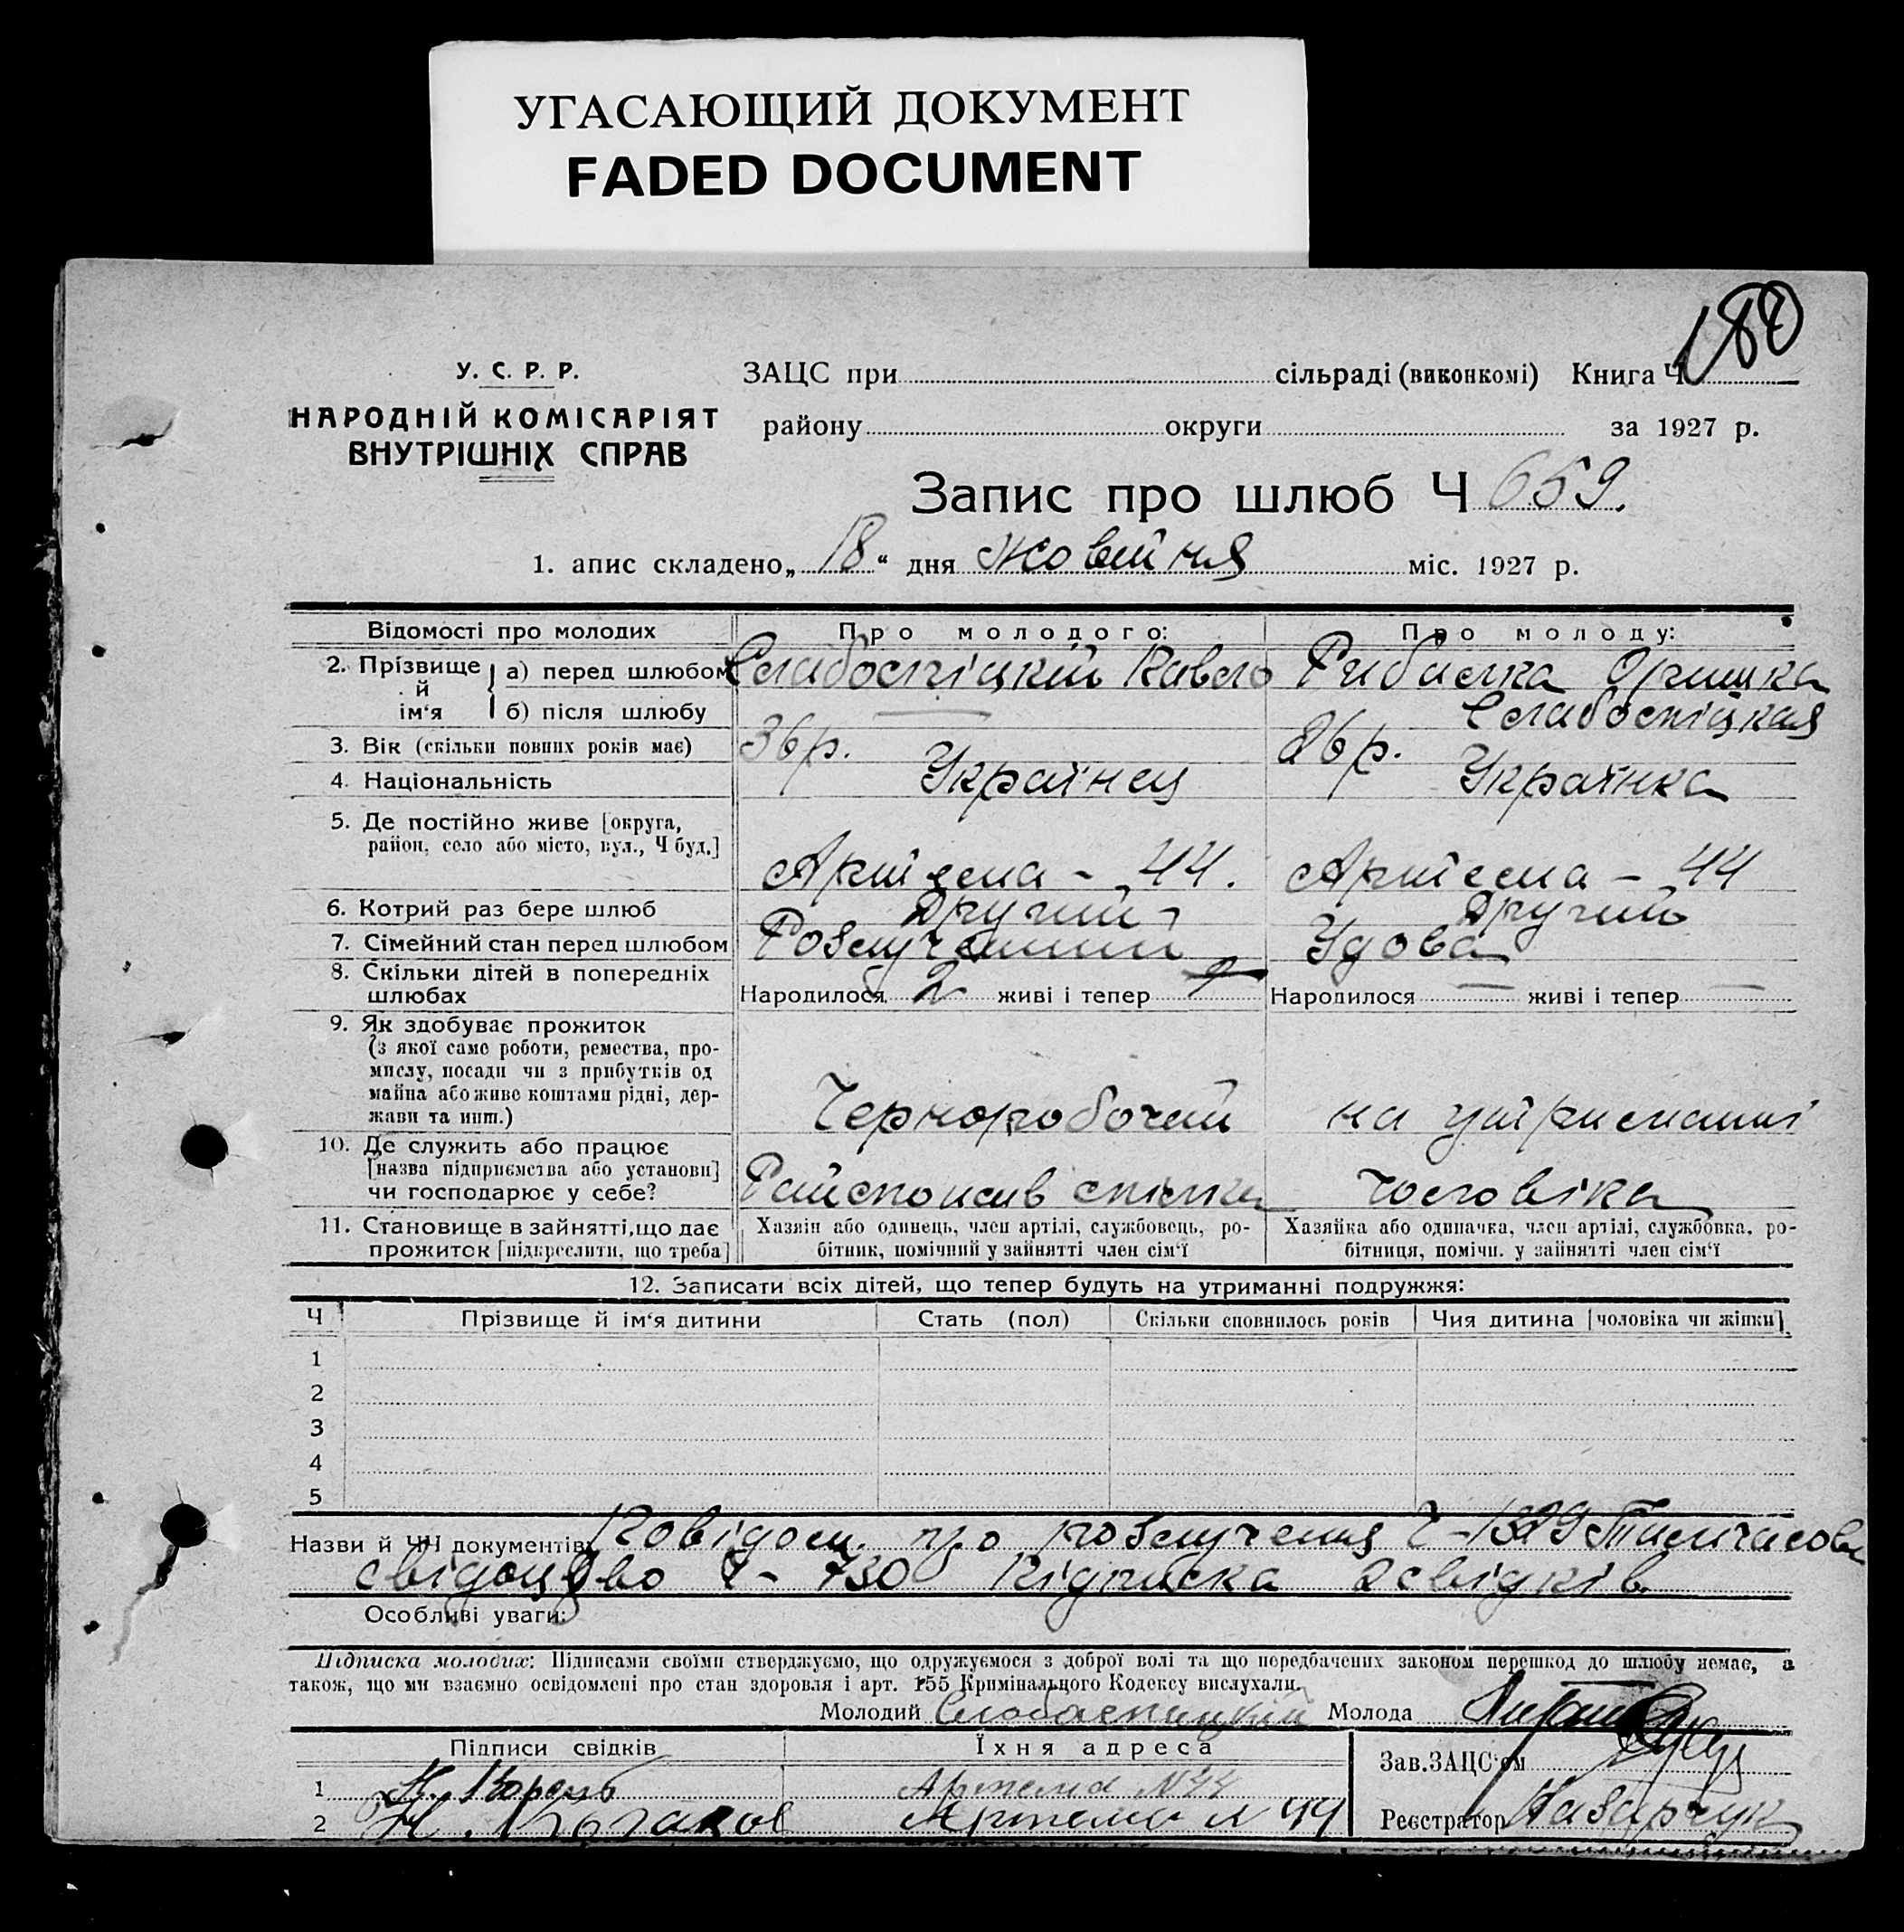 УГАСАЮЩИЙ ДОКУМЕНТ
FADED DOCUMENT
180
У. С. Р. Р.
НАРОДНІЙ КОМІСАРІЯТ
ВНУТРІШНІХ СПРАВ
ЗАЦС при сільраді (виконкомі) Книга Ч
району округи за 1927 р.
Запис про шлюб Ч 659.
1. апис складено „18“ дня Жовтня міс. 1927 р.
Відомості про молодих Про молодого: Про молоду:
2. Прізвище й ім'я а) перед шлюбом Слабоспіцкій Павло Рибалка Оришка
б) після шлюбу — Слабоспіцкая
3. Вік (скільки повних років має) 36 р. 26 р.
4. Національність Українец Українка
5. Де постійно живе [округа,
район, село або місто, вул., Ч буд.]
Артема - 44. Артема - 44
6. Котрий раз бере шлюб Другий Другий
7. Сімейний стан перед шлюбом Розлучений Удова
8. Скільки дітей в попередніх
шлюбах Народилося 2 живі і тепер Народилося — живі і тепер —
9. Як здобуває прожиток
(з якої саме роботи, ремества, про-
мислу, посади чи з прибутків од
майна або живе коштами рідні, дер-
жави та инш.) Черноробочий на утриманні
10. Де служить або працює
[назва підприємства або установи]
чи господарює у себе? спілка чоловіка
11. Становище в зайнятті, що дає
прожиток [підкреслити, що треба]
Хазяїн або одинець, член артілі, службовець, ро-
бітник, помічний у зайнятті член сім'ї
Хазяйка або одиначка, член артілі, службовка, ро-
бітниця, помічн. у зайнятті член сім'ї
12. Записати всіх дітей, що тепер будуть на утриманні подружжя:
Ч Прізвище й ім'я дитини Стать (пол) Скільки сповнилось років Чия дитина [чоловіка чи жінки]
1
2
3
4
5
Назви й ЧЧ документів: Повідом. про розлучення Ч - 1329 Тимчасове
свідоцтво Ч - 730 Підписка 2 свідків
Особливі уваги:
Підписка молодих: Підписами своїми стверджуємо, що одружуємося з доброї волі та що передбачених законом перешкод до шлюбу немає, а
також, що ми взаємно освідомлені про стан здоровля і арт. 155 Кримінального Кодексу вислухали.
Молодий Слобаспицкий Молода
Підписи свідків Їхня адреса
Зав. ЗАЦС'ом
1 Н. Корень Артема N 44
2 Артема N 44
Реєстратор Назарчук